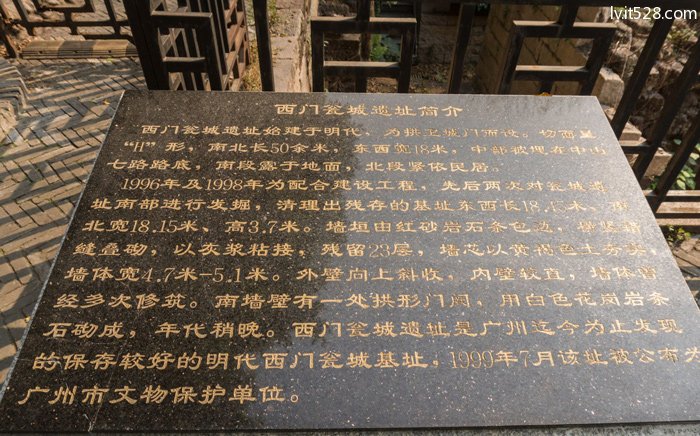 lv.it528.com
西门瓮城遗址简介
西门瓮城遗址始建于明代，为拱卫城门而设。切面呈
“H”形，南北长50余米，东西宽18米，中部被埋在中山
七路路底，南段露于地面，北段紧依民居。
1996年及1998年为配合建设工程，先后两次对瓮城遗
址南部进行发掘，清理出残存的基址东西长18.15米、南
北宽18.15米、高3.7米。墙垣由红砂岩石条包边，横竖错
缝叠砌，以灰浆粘接，残留23层，墙芯以黄褐色土夯实，
墙体宽4.7米-5.1米。外壁向上斜收，内壁较直，墙体曾
经多次修筑。南墙壁有一处拱形门阙，用白色花岗岩条
石砌成，年代稍晚。西门瓮城遗址是广州迄今为止发现
的保存较好的明代西门瓮城基址，1999年7月该址被公布为
广州市文物保护单位。